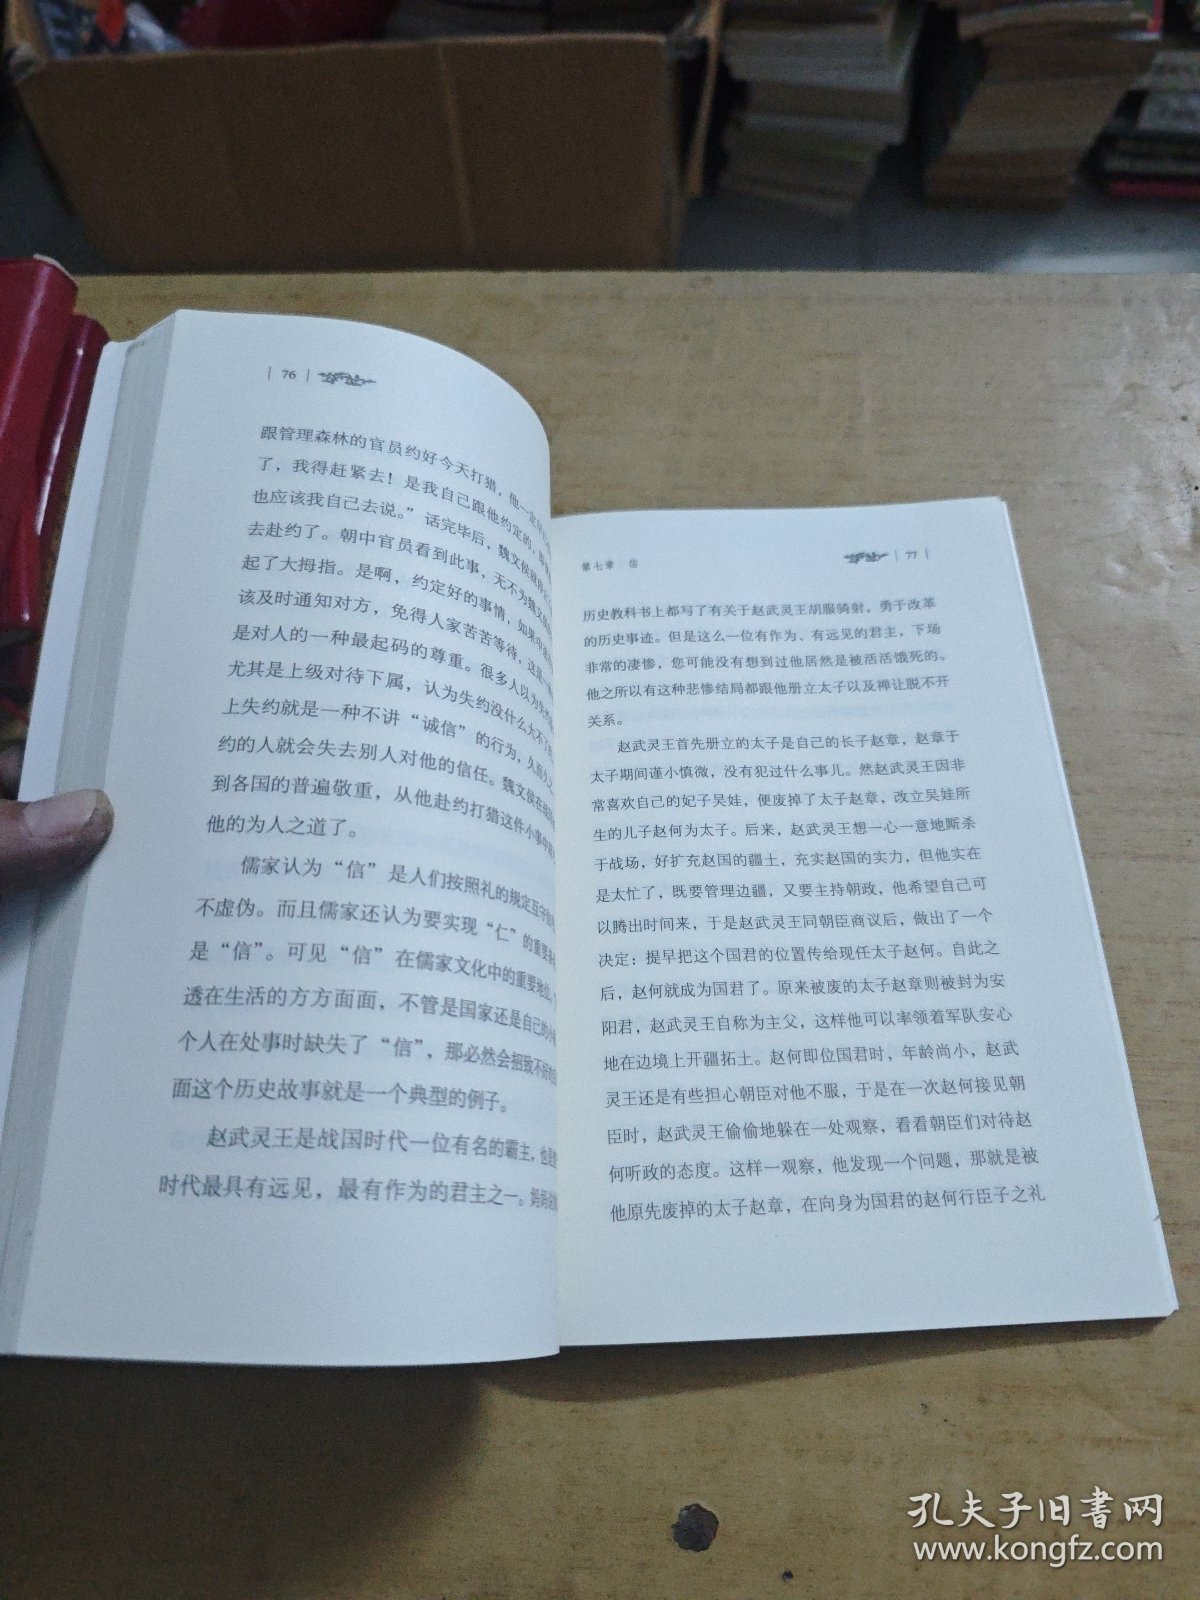 76
跟管理森林的官员约好今天打猎，他一定
了，我得赶紧去！是我自己跟他约定的，
也应该我自己去说。”话完毕后，魏文侯就
去赴约了。朝中官员看到此事，无不为魏文侯
起了大拇指。是啊，约定好的事情，如果
该及时通知对方，免得人家苦苦等待，这是
是对人的一种最起码的尊重。很多人以为失约
尤其是上级对待下属，认为失约没什么大不了
上失约就是一种不讲“诚信”的行为，久而久之
约的人就会失去别人对他的信任。魏文侯在
到各国的普遍敬重，从他赴约打猎这件小事中
他的为人之道了。
儒家认为“信”是人们按照礼的规定互守
不虚伪。而且儒家还认为要实现“仁”的重要
是“信”。可见“信”在儒家文化中的重要地位，
透在生活的方方面面，不管是国家还是自己的
个人在处事时缺失了“信”，那必然会招致不好的
面这个历史故事就是一个典型的例子。
赵武灵王是战国时代一位有名的霸主，也是
时代最具有远见，最有作为的君主之一。妈妈
第七章 信
77
历史教科书上都写了有关于赵武灵王胡服骑射，勇于改革
的历史事迹。但是这么一位有作为、有远见的君主，下场
非常的凄惨，您可能没有想到过他居然是被活活饿死的。
他之所以有这种悲惨结局都跟他册立太子以及禅让脱不开
关系。
赵武灵王首先册立的太子是自己的长子赵章，赵章于
太子期间谨小慎微，没有犯过什么事儿。然赵武灵王因非
常喜欢自己的妃子吴娃，便废掉了太子赵章，改立吴娃所
生的儿子赵何为太子。后来，赵武灵王想一心一意地厮杀
于战场，好扩充赵国的疆土，充实赵国的实力，但他实在
是太忙了，既要管理边疆，又要主持朝政，他希望自己可
以腾出时间来，于是赵武灵王同朝臣商议后，做出了一个
决定：提早把这个国君的位置传给现任太子赵何。自此之
后，赵何就成为国君了。原来被废的太子赵章则被封为安
阳君，赵武灵王自称为主父，这样他可以率领着军队安心
地在边境上开疆拓土。赵何即位国君时，年龄尚小，赵武
灵王还是有些担心朝臣对他不服，于是在一次赵何接见朝
臣时，赵武灵王偷偷地躲在一处观察，看看朝臣们对待赵
何听政的态度。这样一观察，他发现一个问题，那就是被
他原先废掉的太子赵章，在向身为国君的赵何行臣子之礼
孔夫子旧书网
www.kongfz.com